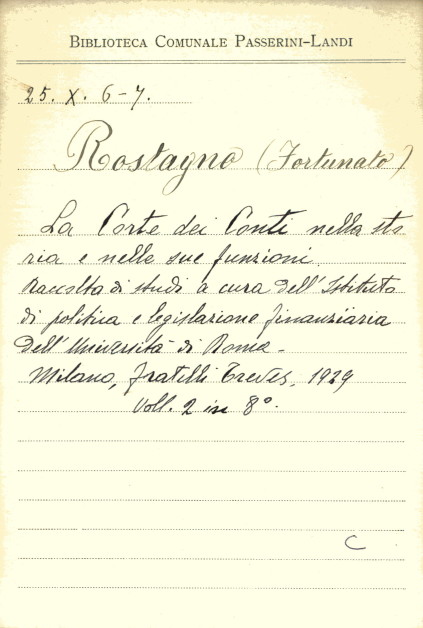 BIBLIOTECA COMUNALE PASSERINI-LANDI
25. X. 6-7.
Rostagno (Fortunato)
La Corte dei Conti nella sto
ria e nelle sue funzioni
Raccolta di studi a cura dell'Istituto
di politica e legislazione finanziaria
dell'Università di Roma.
Milano, fratelli Treves, 1929
Voll. 2 in 8°.
C